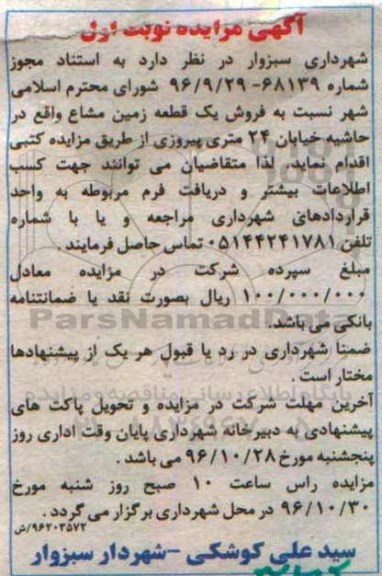 آگهی مزایده نوبت اول
شهرداری سبزوار در نظر دارد به استناد مجوز
شماره ۶۸۱۳۹- ۹۶/۹/۲۹ شورای محترم اسلامی
شهر نسبت به فروش یک قطعه زمین مشاع واقع در
حاشیه خیابان ۲۴ متری پیروزی از طریق مزایده کتبی
اقدام نماید. لذا متقاضیان می توانند جهت کسب
اطلاعات بیشتر و دریافت فرم مربوطه به واحد
قراردادهای شهرداری مراجعه و یا با شماره
تلفن ۰۵۱۴۴۲۴۱۷۸۱ تماس حاصل فرمایند .
مبلغ سپرده شرکت در مزایده معادل
۱۰۰/۰۰۰/۰۰۰ ریال بصورت نقد یا ضمانتنامه
بانکی می باشد.
ضمنا شهرداری در رد یا قبول هر یک از پیشنهادها
مختار است .
آخرین مهلت شرکت در مزایده و تحویل پاکت های
پیشنهادی به دبیرخانه شهرداری پایان وقت اداری روز
پنجشنبه مورخ ۹۶/۱۰/۲۸ می باشد .
مزایده راس ساعت ۱۰ صبح روز شنبه مورخ
۹۶/۱۰/۳۰ در محل شهرداری برگزار می گردد .
۹۶۲۰۳۵۷۲/ش
سید علی کوشکی -شهردار سبزوار
ParsNamadData